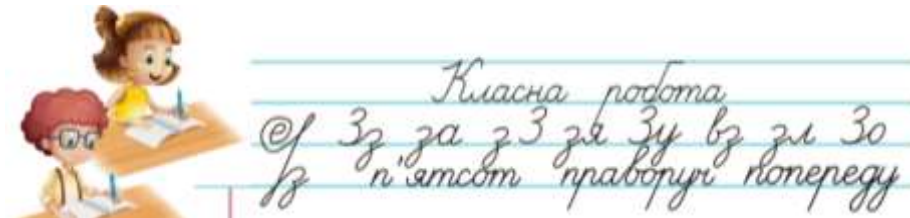 Класна робота
Зз за з З зя Зу вз зл Зо
п'ятсот праворуч попереду